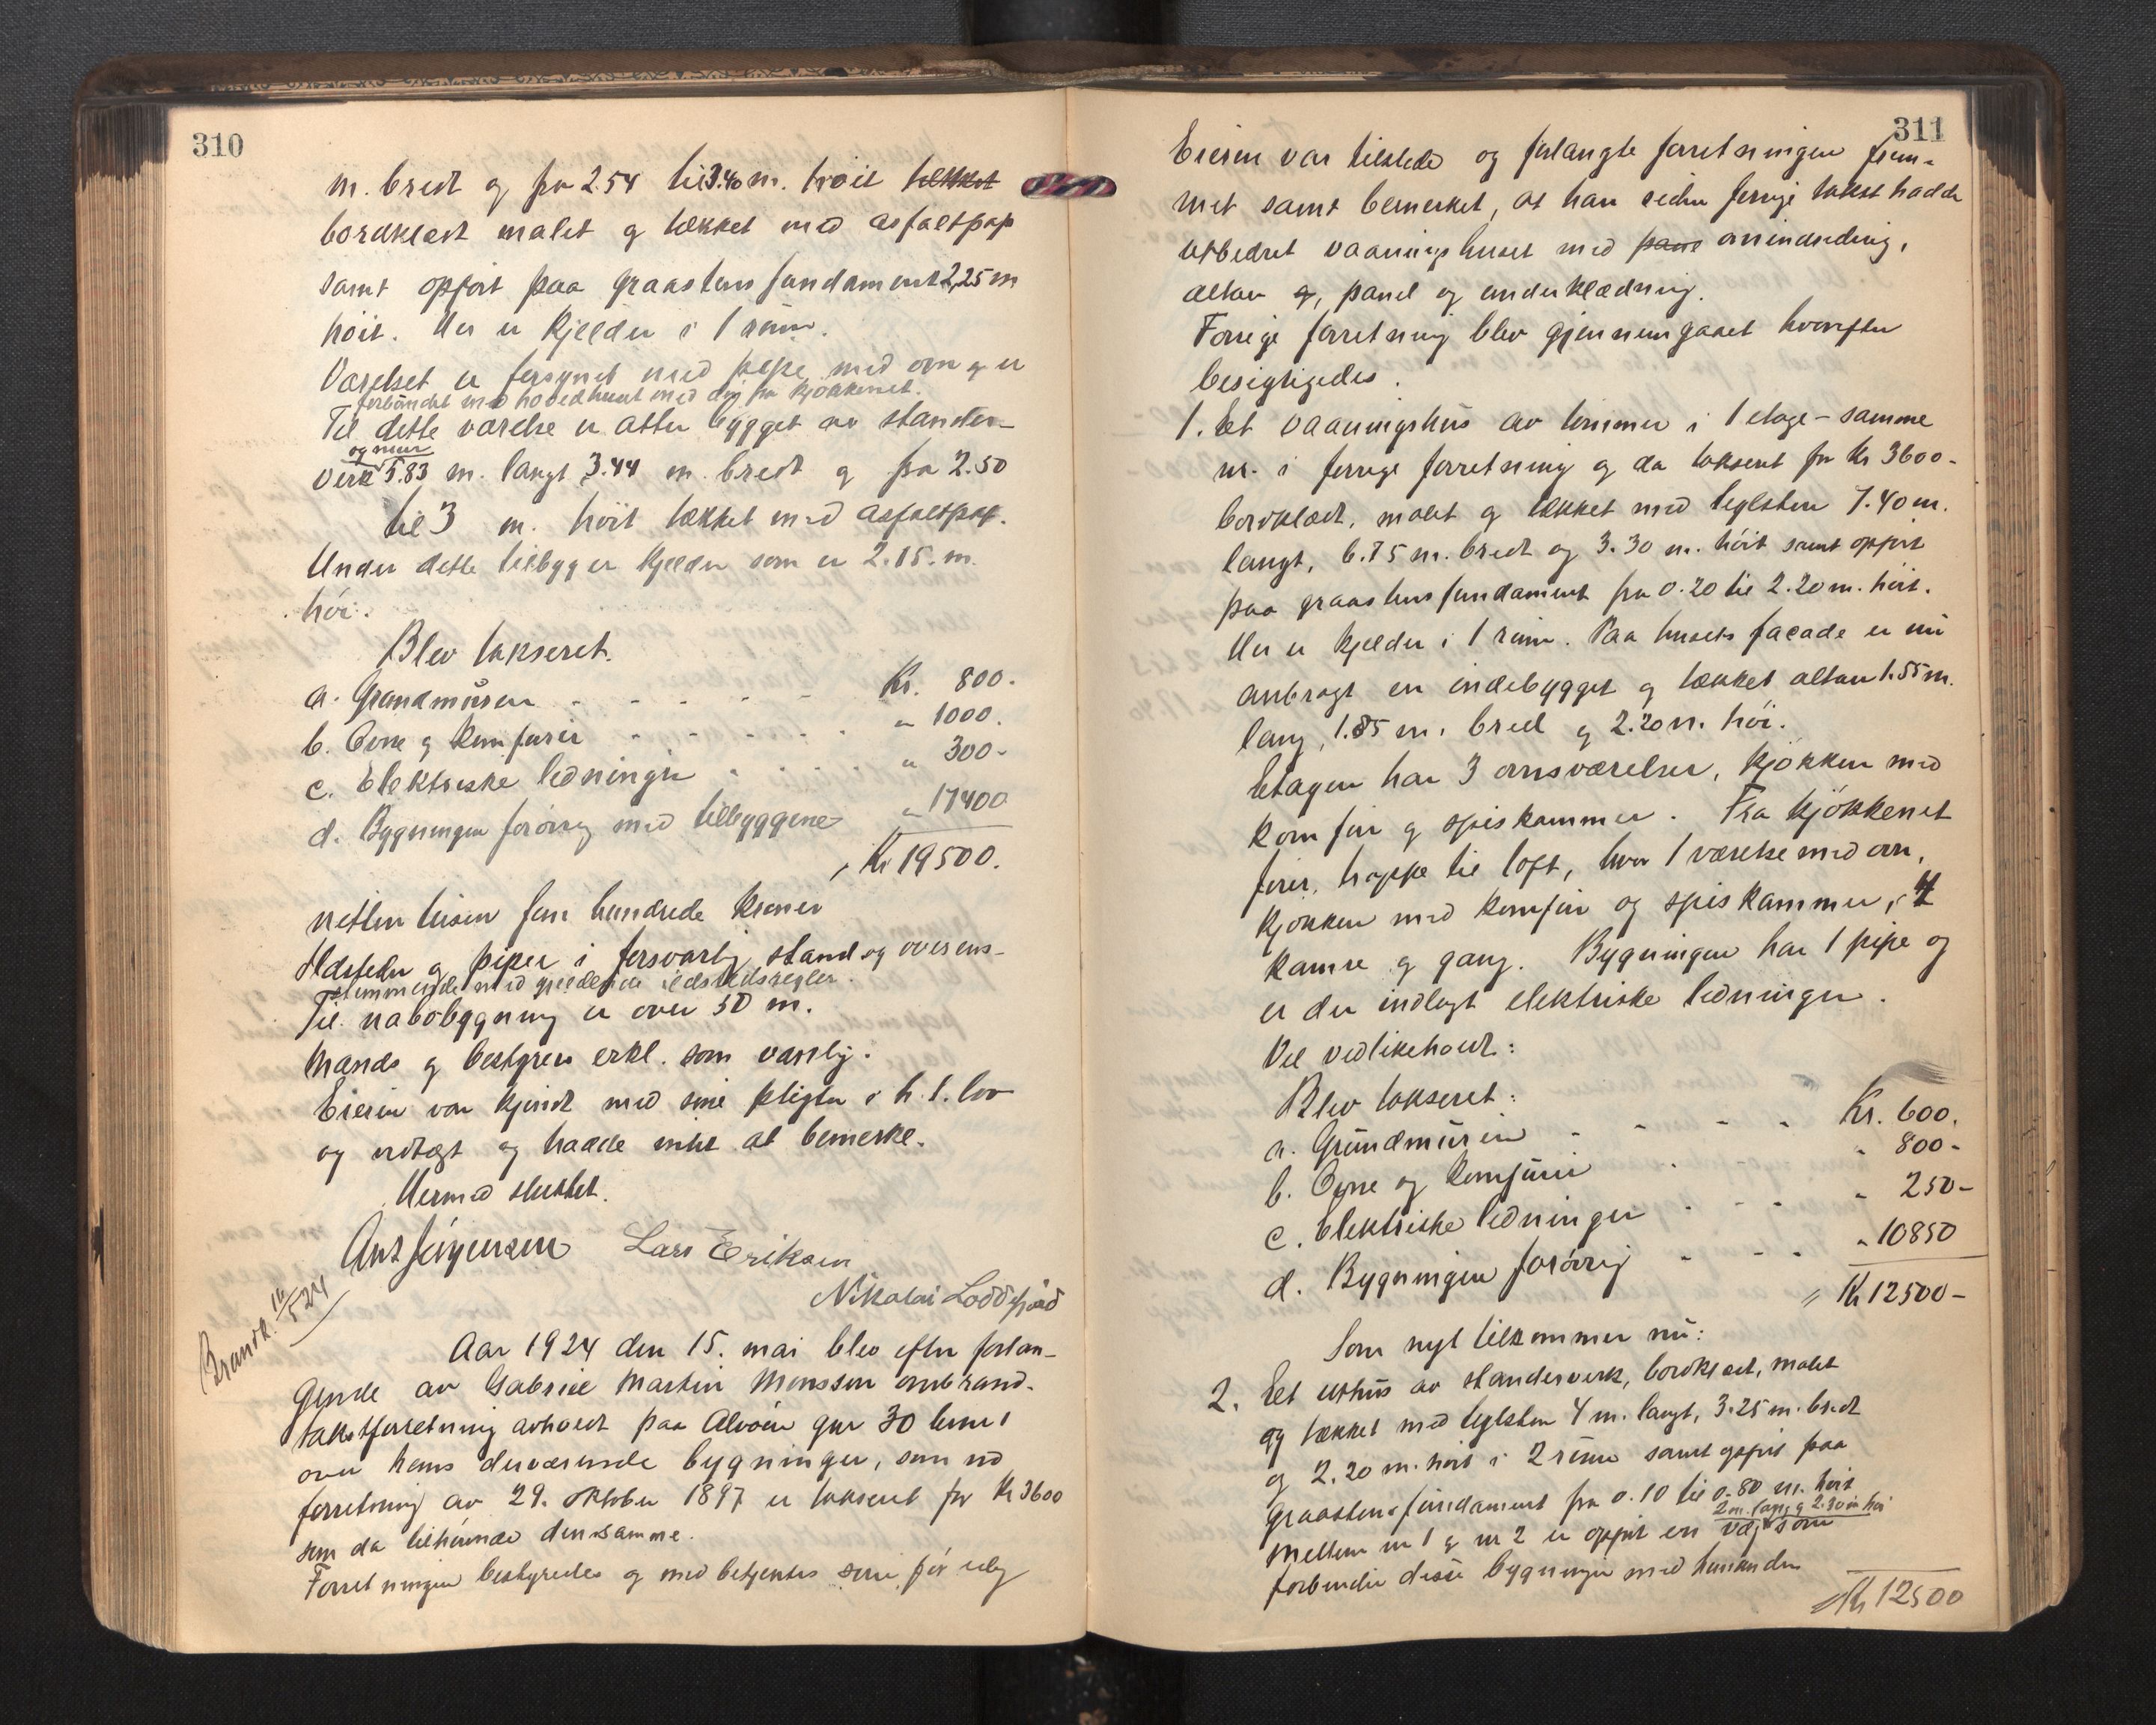 310
m. bredt og fra 2.54 til 3.40 m. høit tekket
bordklædt malet og tækket med asfaltpap
samt opført paa graastens fundament 2,25 m
høit. Her er kjelder i 1 rum.
Værelset er forsynet med pipe med ovn og er
forbundet med hovedhuset med dør fra kjøkkenet.
Til dette værelse er atter bygget av stander-
og mur
verk 5.83 m. langt 3.44 m. bredt og fra 2.50
til 3 m. høit tækket med asfaltpap.
Under dette tilbygg er kjelder som er 2.15. m.
høi.
Blev takseret.
a. Grundmuren - - - - Kr. 800.
b. Ovne og komfurer - - - - " 1000.
c. Elektriske ledninger - - - - " 300-
d. Bygningen forøvrig med tilbyggene " 17400
Kr 19500.
nitten tusen fem hundrede kroner
Ildsteder og piper i forsvarlig stand og overens-
stemmende med gjældende ildstedsregler.
Til nabobygning er over 50 m.
Mænds og bestyrers erkl. som vanlig.
Eieren var kjendt med sine pligter i h. t. lov
og vedtægt og hadde intet at bemerke.
Hermed sluttet.
Ant Jørgensen Lars Eriksen
Nikolai Loddefjord
Brandk. 16/5 24
Aar 1924 den 15. mai blev efter forlan-
gende av Gabriel Martin Monssen ombrand-
takstforretning avholdt paa Alvøen gnr 30 bnr 1
over hans derværende bygninger, som ved
forretning av 29. oktober 1897 er takseret for Kr 3600
som da tilhørende den samme.
Forretningen bestyredes og med betjentes som før
311
Eieren var tilstede og forlangte forretningen frem-
met samt bemerket, at han siden forrige takst hadde
utbedret vaaningshuset med pane omindreding,
altan og, panel og underklædning.
Forrige forretning blev gjennemgaaet hvorefter
besigtigedes.
1. Et vaaningshus av tømmer i 1 etage - samme
nr. i forrige forretning og da takseret for Kr 3600-
bordklædt, malet og tækket med teglsten 7.40 m.
langt, 6.75 m. bredt og 3.30 m. høit samt opført
paa graastens fundament fra 0.20 til 2.20 m. høit.
Her er kjelder i 1 rum. Paa husets facade er nu
anbragt en indebygget og tækket altan 1.55 m.
lang, 1.85 m. bred og 2.20 m. høi.
Etagen har 3 ovnsværelser, kjøkken med
komfur og spiskammer. Fra kjøkkenet
fører trappe til loft, hvor 1 værelse med ovn,
kjøkken med komfur og spiskammer, 4
kamre og gang. Bygningen har 1 pipe og
er der indlagt elektriske ledninger.
Vel vedlikeholdt:
Blev takseret:
a. Grundmuren - - - - Kr. 600.
b. Ovne og komfurer - " 800-
c. Elektriske ledninger - - - " 250-
d. Bygningen forøvrig - - - " 10850
Kr 12500-
Som nyt tilkommer nu:
2. Et uthus av standerverk, bordklædt, malet
og tækket med teglsten 4 m. langt, 3.25 m. bredt
og 2.20 m. høit i 2 rum samt opført paa
graastensfundament fra 0.10 til 0.80 m. høit
2 m. lang og 2.30 m høi
Mellem nr 1 og nr 2 er opført en væg som
forbinder disse bygninger med hinanden
Kr 12500